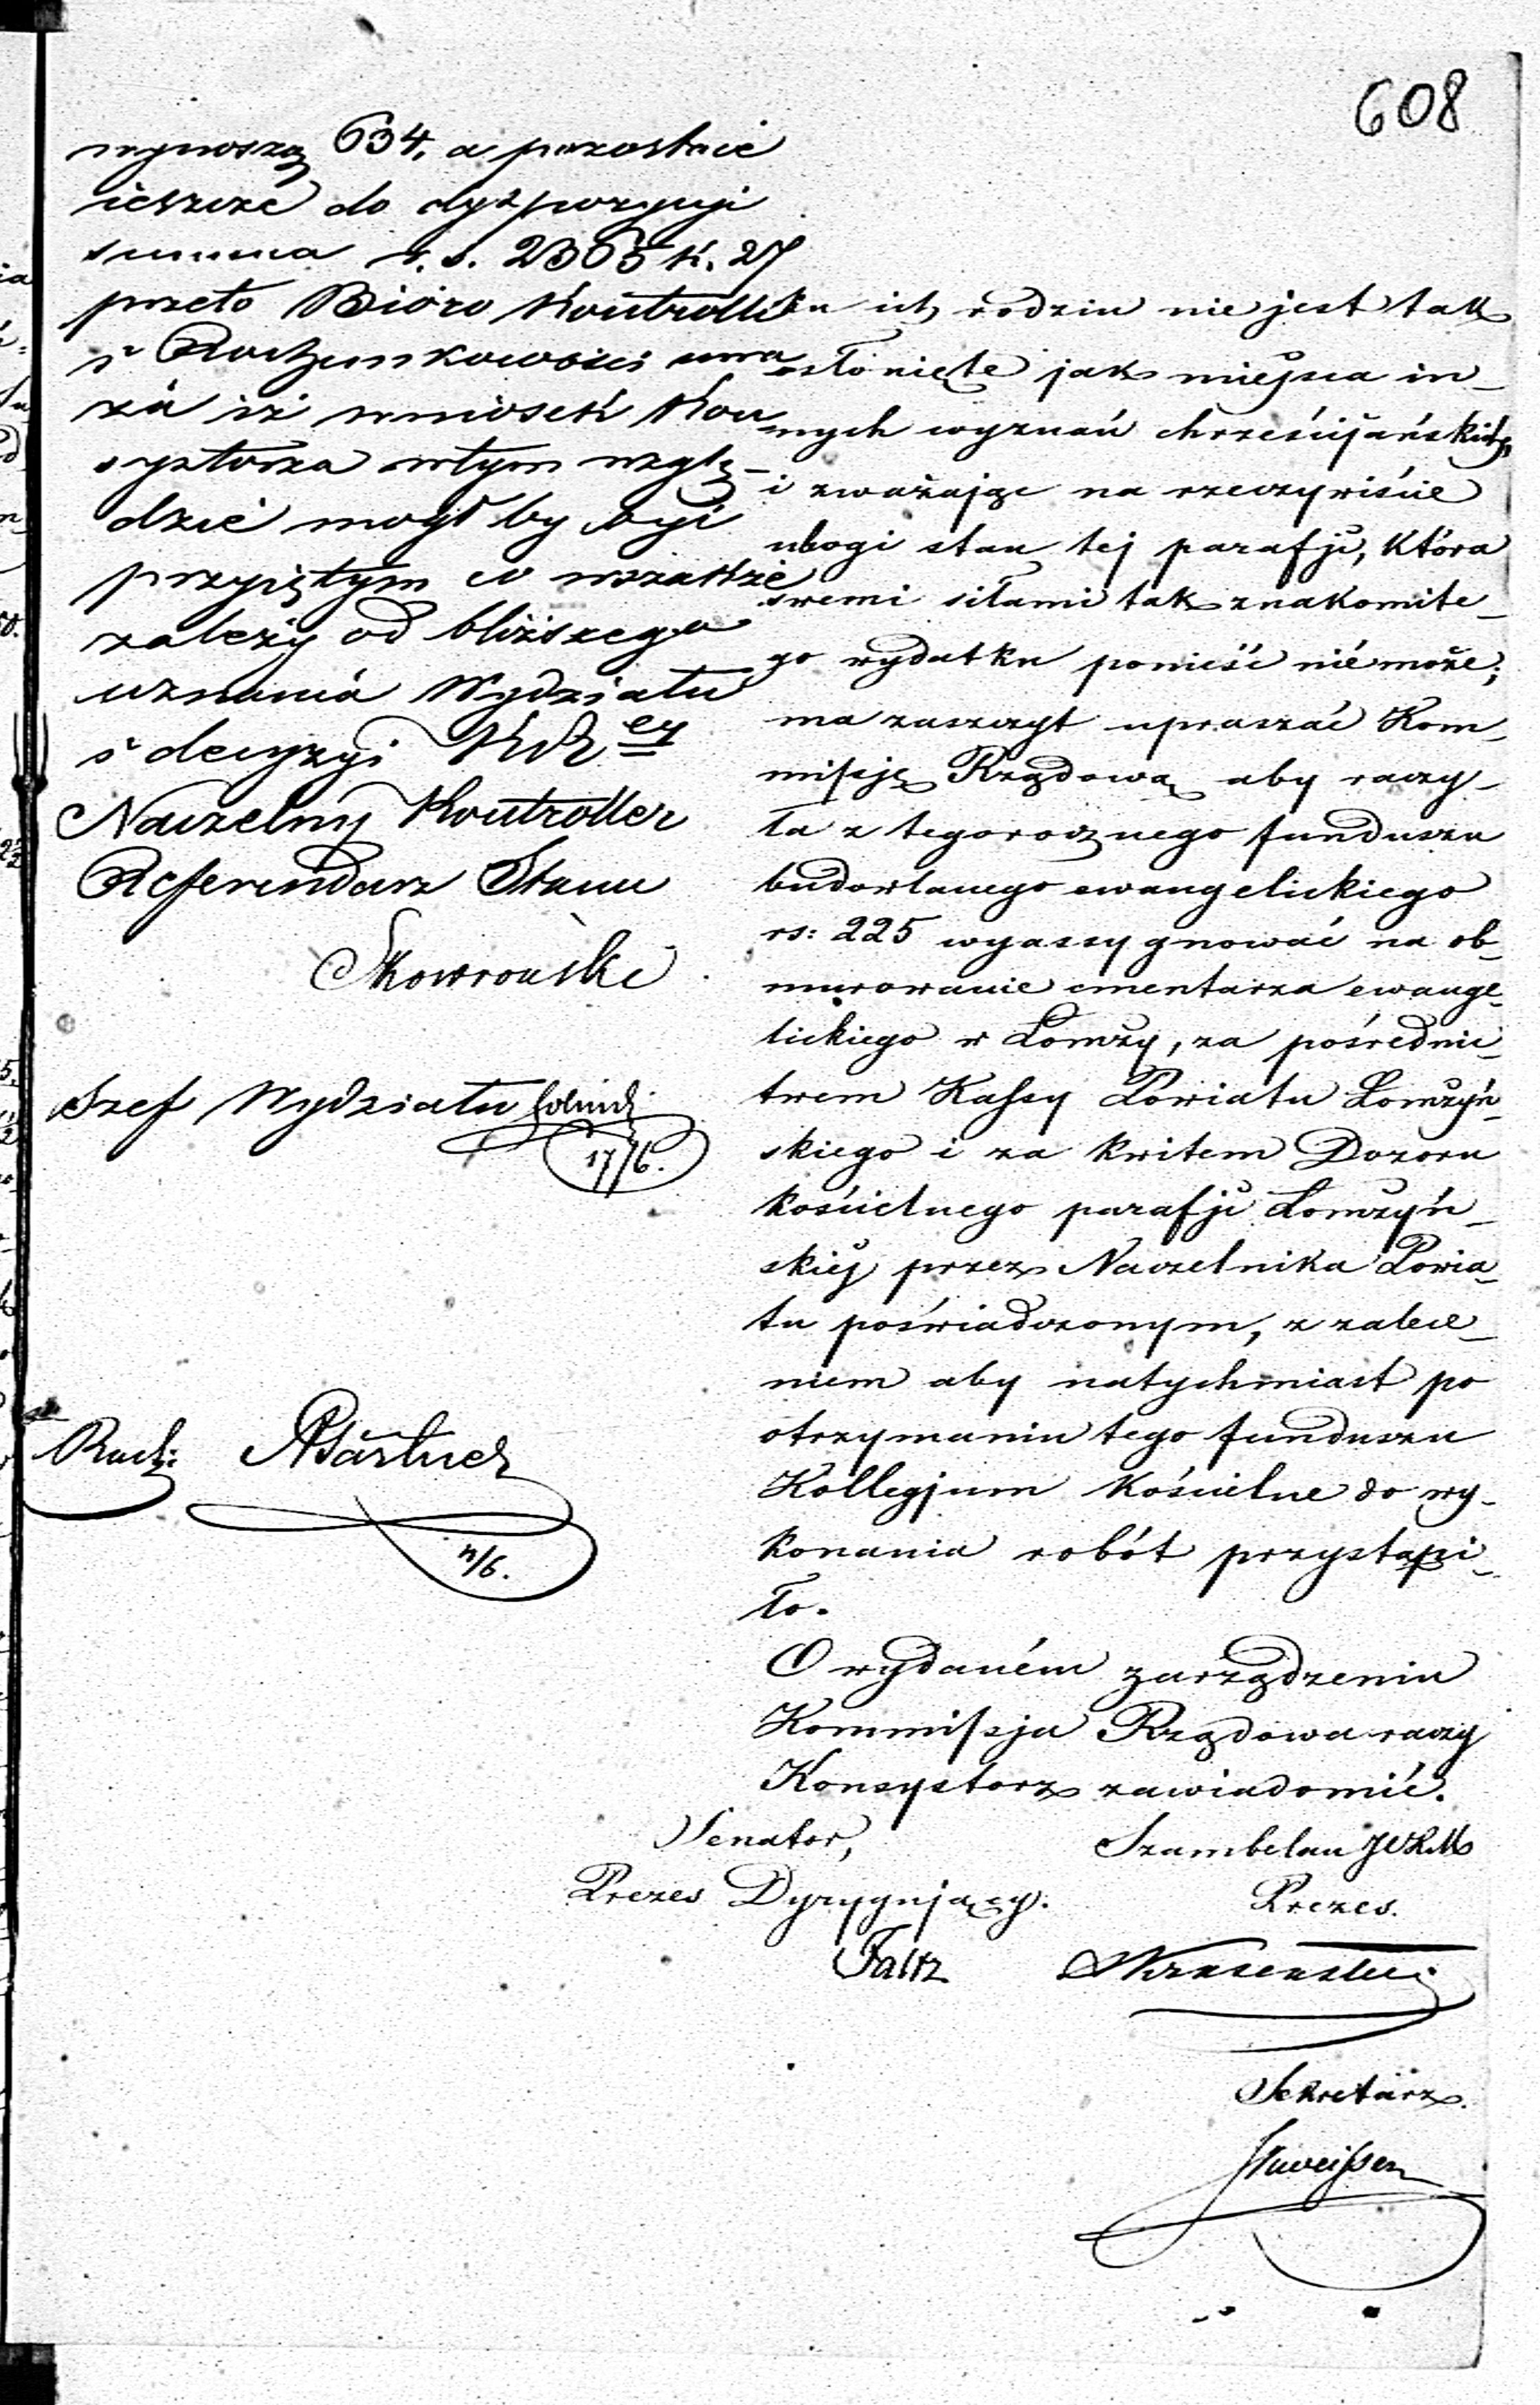 608
wynoszą 634, a pozostaie
ieszcze do dyzpozycyi
summa r. s. 2365 k. 27
przeto Bióro Kontrolli
i Rachunkowości uwa
ża iż wniosek Kon
systorza w tym wzglę-
dzie mógł by być
przyiętym co wszakże
zależy od bliższego
uznania Wydziału
i decyzyi KR ey
Naczelny Kontroller
Referendarz Stanu
Skowroński
Szef Wydziału
17/6.
Rach:
/6.
ku ich rodzin nie jest tak
osłonięte jak miejsca in-
nych wyznań chrześcijańskich,
i zważając na rzeczywiście
ubogi stan tej parafji, która
swemi siłami tak znakomite-
go wydatku ponieść nie może;
ma zaszczyt upraszać Kom-
missję Rządową aby raczy-
ła z tegorocznego funduszu
budowlanego ewangelickiego
rs: 225 wyassygnować na ob-
murowanie cmentarza ewange-
lickiego w Łomży, za pośrednic-
twem Kassy Powiatu Łomżyń-
skiego i za kwitem Dozoru
kościelnego parafji Łomżyń-
skiéj przez Naczelnika Powia-
tu poświadczonym, z zalece-
niem aby natychmiast po
otrzymaniu tego funduszu
Kollegjum Kościelne do wy-
konania robót przystąpi-
ło.
O wydaném zarządzeniu
Kommissja Rządowa raczy
Konsystorz zawiadomić.
Senator,
Prezes Dyrygujący.
Faltz
Szambelan JCKM
Prezes.
Sekretarz.